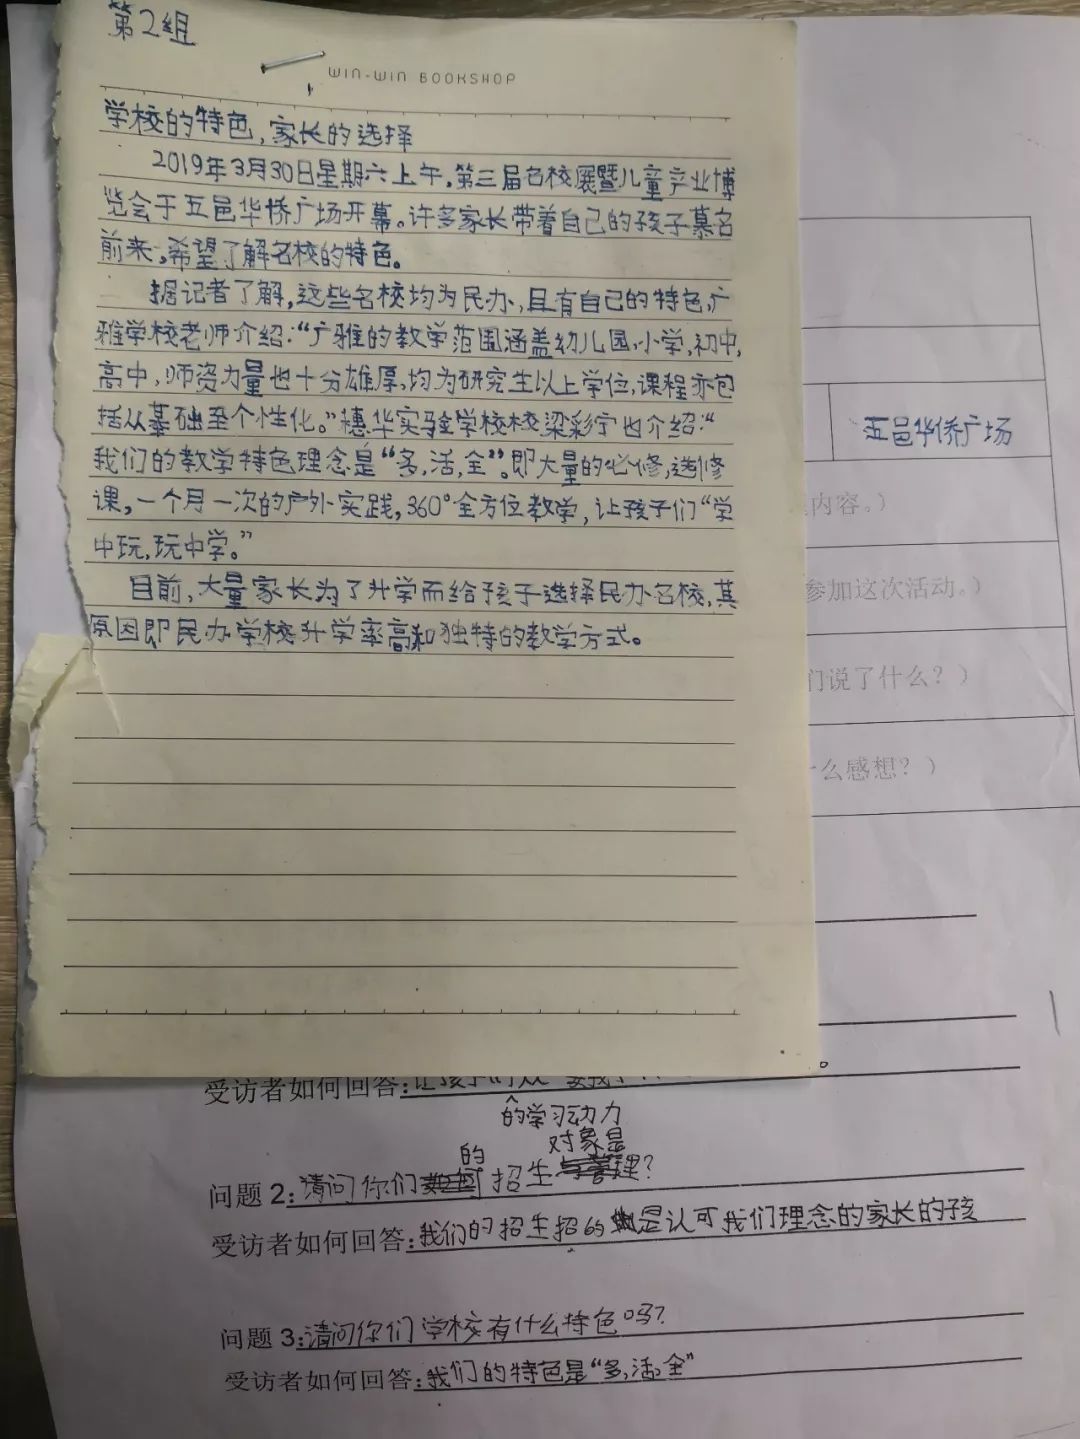 第2组
WIN-WIN BOOKSHOP
学校的特色,家长的选择
2019年3月30日星期六上午,第三届名校展暨儿童产业博
览会于五邑华侨广场开幕。许多家长带着自己的孩子慕名
前来,希望了解名校的特色。
据记者了解,这些名校均为民办,且有自己的特色,广
雅学校老师介绍:“广雅的教学范围涵盖幼儿园,小学,初中,
高中,师资力量也十分雄厚,均为研究生以上学位,课程亦包
括从基础至个性化。”穗华实验学校校梁彩宇也介绍:“
我们的教学特色理念是“多,活,全”。即大量的必修,选修
课,一个月一次的户外实践,360°全方位教学,让孩子们“学
中玩,玩中学。”
目前,大量家长为了升学而给孩子选择民办名校,其
原因即民办学校升学率高和独特的教学方式。
五邑华侨广场
内容。)
参加这次活动。)
们说了什么?)
么感想?)
受访者如何回答:让孩子们从
的学习动力
的 对象是
问题2:请问你们招生 ?
受访者如何回答:我们的招生招的是认可我们理念的家长的孩
问题3:请问你们学校有什么特色吗?
受访者如何回答:我们的特色是“多,活,全”